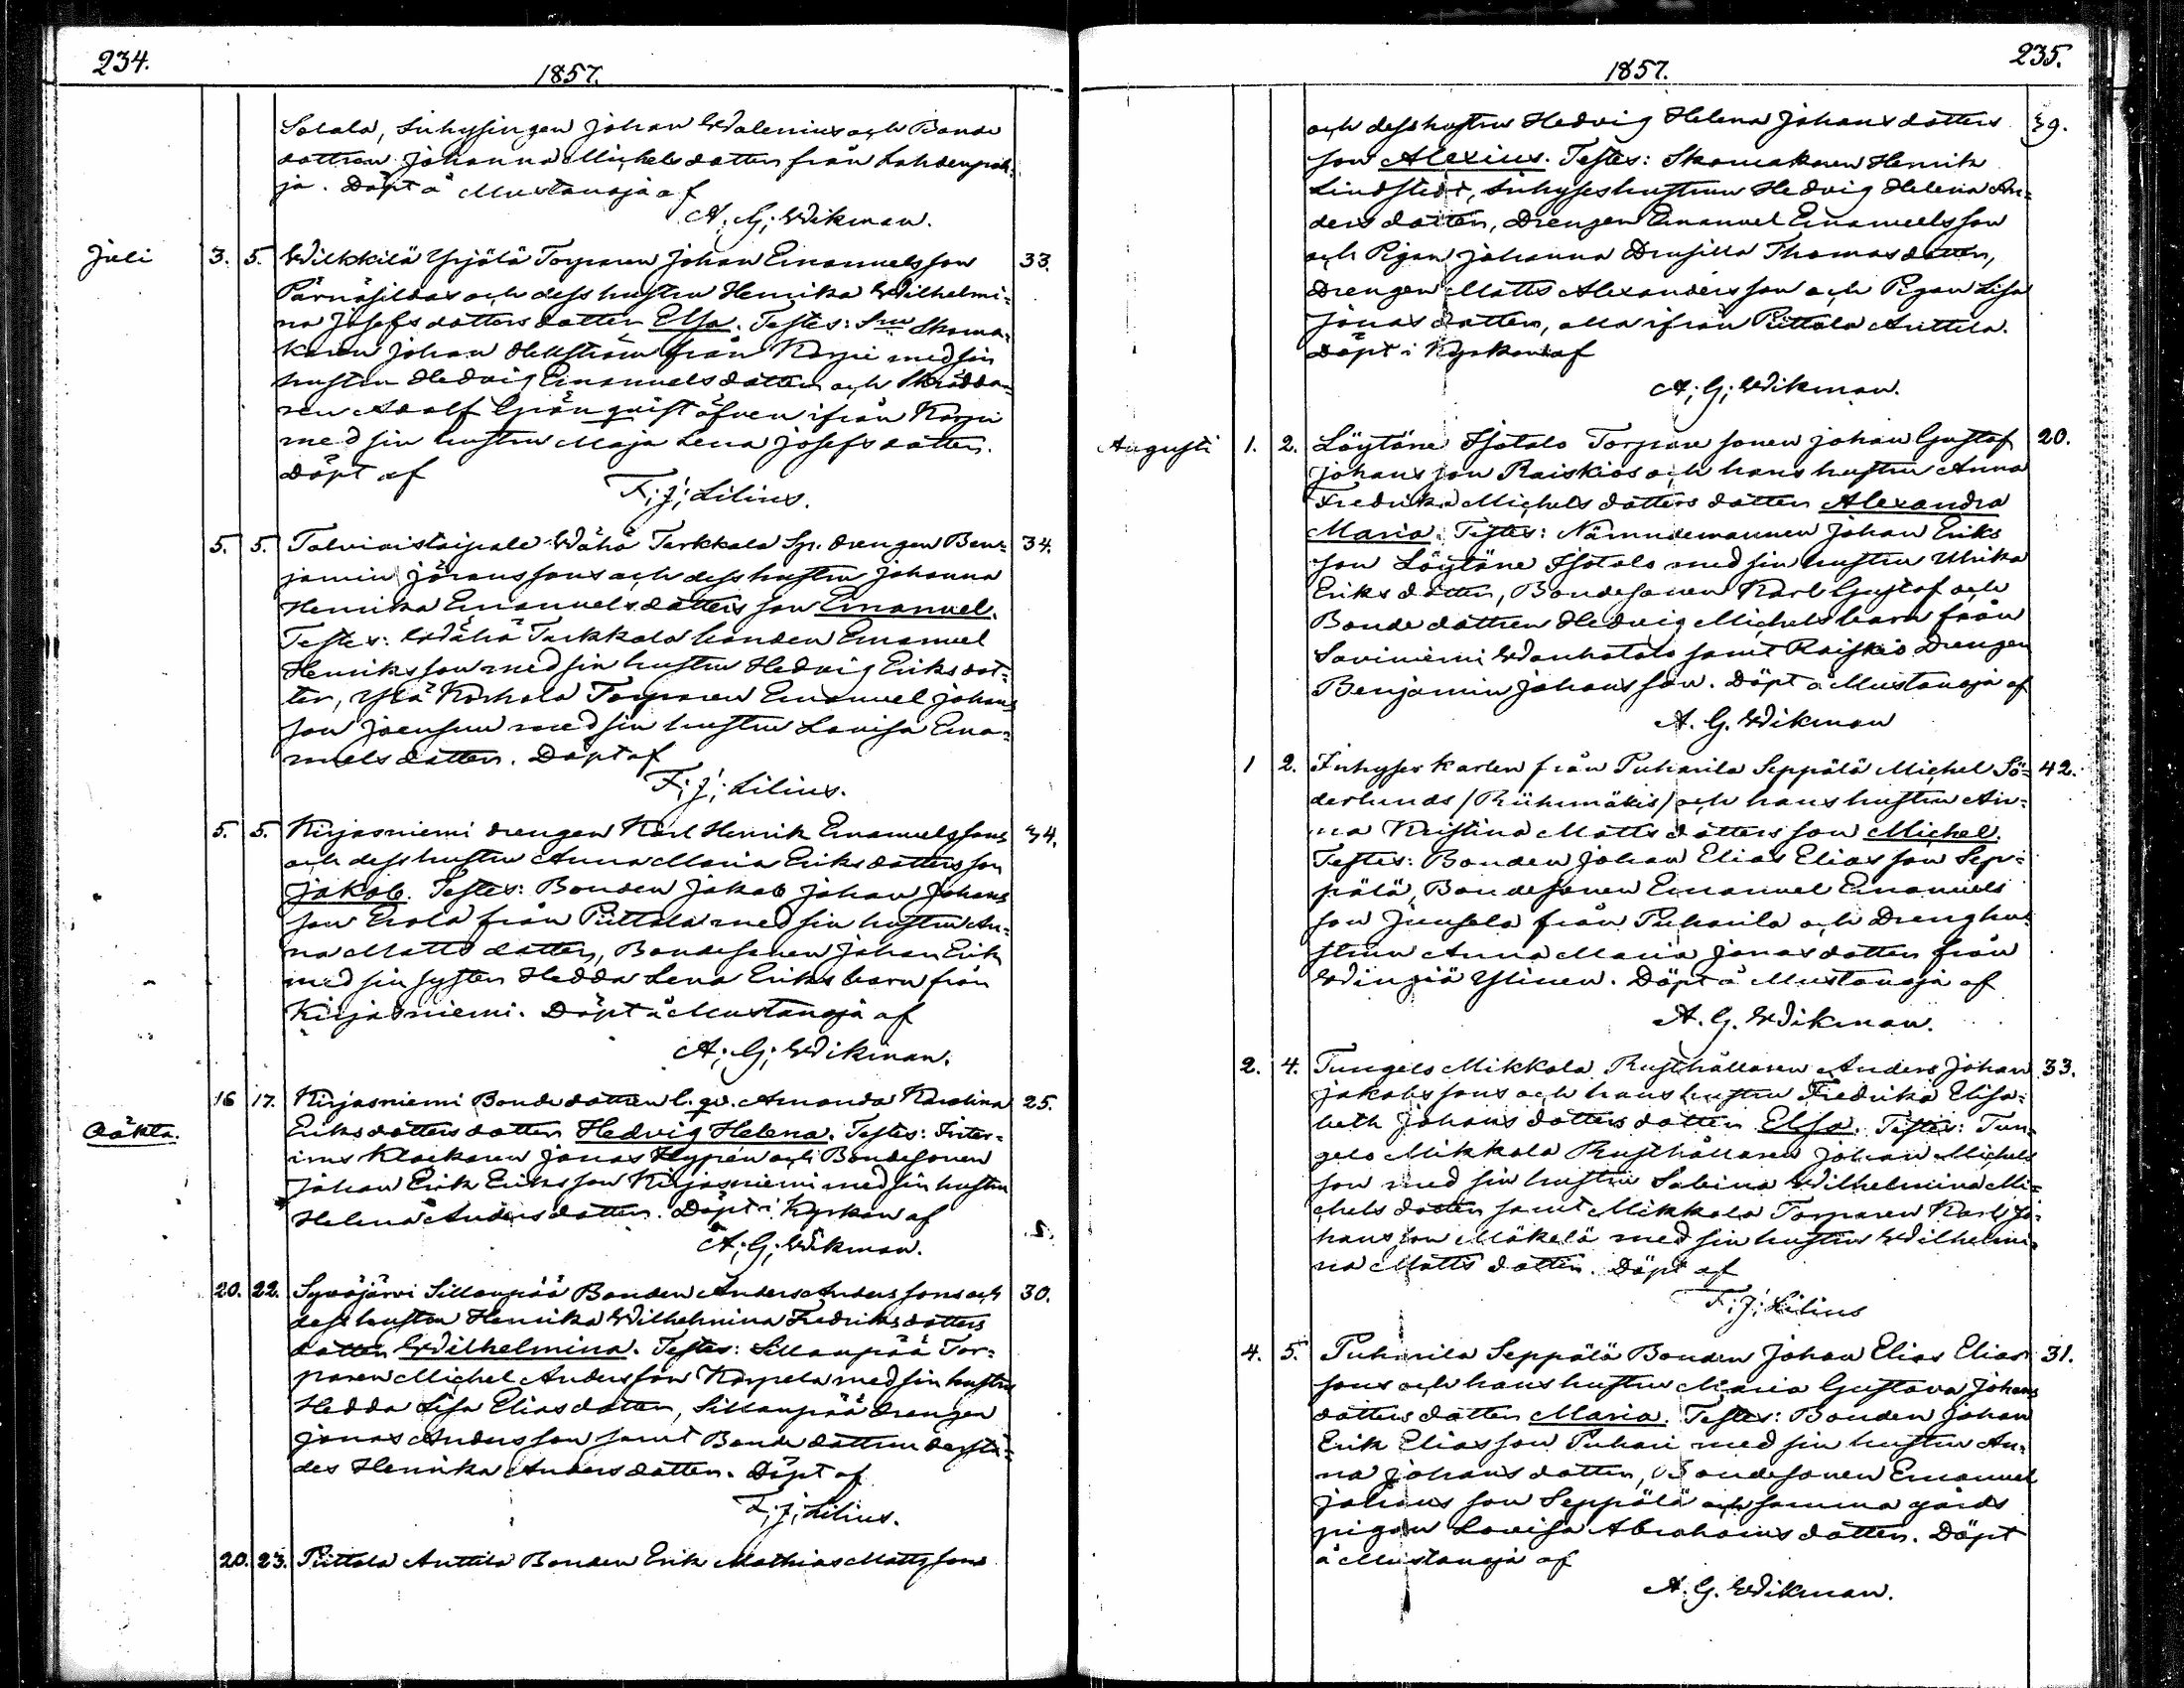 234.
1857.
Salala, Inhysingen Johan Walenius och Bonde
dottren Johanna Michelsdotter från Lahdenpoh=
ja. Döpt å Mustanoja af
A; G; Wikman.
Juli 3. 5. Wilkkilä Yrjölä Torparen Johan Emanuelsson 33.
Pärnäsildas och dess hustru Henrika Wilhelmi=
na Josefsdotters dotter Elsa. Testes: Skoma=
karen Johan Hellström från Karpi med sin
hustru Hedvig Emanuelsdotter och Skrädda=
ren Adolf Grönqvist äfven ifrån Karpi
med sin hustru Maja Lena Josefsdotter.
Döpt af
F; J; Lilius.
5. 5. Talvioistaipale Wähä Tarkkala Sp. drengen Ben= 34.
jamin Jöranssons och dess hustru Johanna
Henrika Emanuelsdotters son Emanuel.
Testes: Wähä Tarkkala bonden Emanuel
Henriksson med sin hustru Hedvig Eriksdot=
ter, Ylä Korhola Torparen Emanuel Johans
son Joensuu med sin hustru Lovisa Ema=
nuelsdotter. Döpt af
F; J; Lilius.
5. 5. Kirjasniemi drengen Karl Henrik Emanuelssons 34.
och dess hustru Anna Maria Eriksdotters son
Jakob. Testes: Bonden Jakob Johan Johans
son Erola från Piittala med sin hustru An=
na Mattsdotter, Bondesonen Johan Erik
med sin syster Hedda Lena Eriks barn från
Kirjasniemi. Döpt å Mustanoja af
A; G; Wikman.
16 17. Kirjasniemi Bondedottren l. qv. Amanda Karolina 25.
Oäkta. Eriksdotters dotter Hedvig Helena. Testes: Inter=
ims Klockaren Jonas Nypén och Bondesonen
Johan Erik Eriksson Kirjasniemi med sin hustru
Helena Andersdotter. Döpt i Kyrkan af
A; G; Wikman.
20. 22. Syväjärvi Sillanpää Bonden Anders Anderssons och 30.
dess hustru Henrika Wilhelmina Fredriksdotters
dotter Wilhelmina. Testes: Sillanpää Tor=
paren Michel Andersson Korpela med sin hustru
Hedda Lisa Eliasdotter, Sillanpää drengen
Jonas Andersson samt Bondedottren derstä=
des Henrika Andersdotter. Döpt af
F; J; Lilius.
20. 23. Piittala Anttila Bonden Erik Mathias Mattssons
235.
1857.
och dess hustru Hedvig Helena Johansdotters 39.
son Alexius. Testes: Skomakaren Henrik
Lindstedt, Inhyseshustrun Hedvig Helena An=
dersdotter, Drengen Emanuel Emanuelsson
och Pigan Johanna Drusilla Thomasdotter,
Drengen Matts Alexandersson och Pigan Lisa
Jonasdotter, alla ifrån Piittala Anttila.
Döpt i Kyrkan af
A; G; Wikman.
Augusti 1. 2. Löytäne Isotalo Torparesonen Johan Gustaf 20.
Johansson Raiskios och hans hustru Anna
Fredrika Michelsdotters dotter Alexandra
Maria. Testes: Nämndemannen Johan Eriks
son Löytäne Isotalo med sin hustru Ulrika
Eriksdotter, Bondesonen Karl Gustaf och
Bondedottren Hedvig Michelsbarn från
Saviniemi Wanhatalo samt Raiskio Drengen
Benjamin Johansson. Döpt å Mustanoja af
A. G. Wikman
1 2. Inhyses karlen från Puharila Seppälä Michel Sö= 42.
derlunds /Riihimäkis/ och hans hustru An=
na Kristina Mattsdotters son Michel.
Testes: Bonden Johan Elias Eliasson Sep=
pälä, Bondesonen Emanuel Emanuels
son Junsela från Puharila och Drenghu=
strun Anna Maria Jonasdotter från
Wingiä Ylinen. Döpt å Mustanoja af
A. G. Wikman.
2. 4. Tungelo Mikkola Rusthållaren Anders Johan 33.
Jakobssons och hans hustru Fredrika Elisa=
beth Johansdotters dotter Elsa. Testes: Tun=
gelo Mikkola Rusthållaren Johan Michels
son med sin hustru Sabina Wilhelmina Mi=
chelsdotter samt Mikkola Torparen Karl Jo=
hansson Mäkelä med sin hustru Wilhelmi=
na Mattsdotter. Döpt af
F; J; Lilius
4. 5. Puharila Seppälä Bonden Johan Elias Elias 31.
sons och hans hustru Maria Gustava Johans
dotters dotter Maria. Testes: Bonden Johan
Erik Eliasson Puhari med sin hustru An=
na Johansdotter, Bondesonen Emanuel
Johansson Seppälä och samma gårds
pigan Lovisa Abrahamsdotter. Döpt
å Mustanoja af
A. G. Wikman.